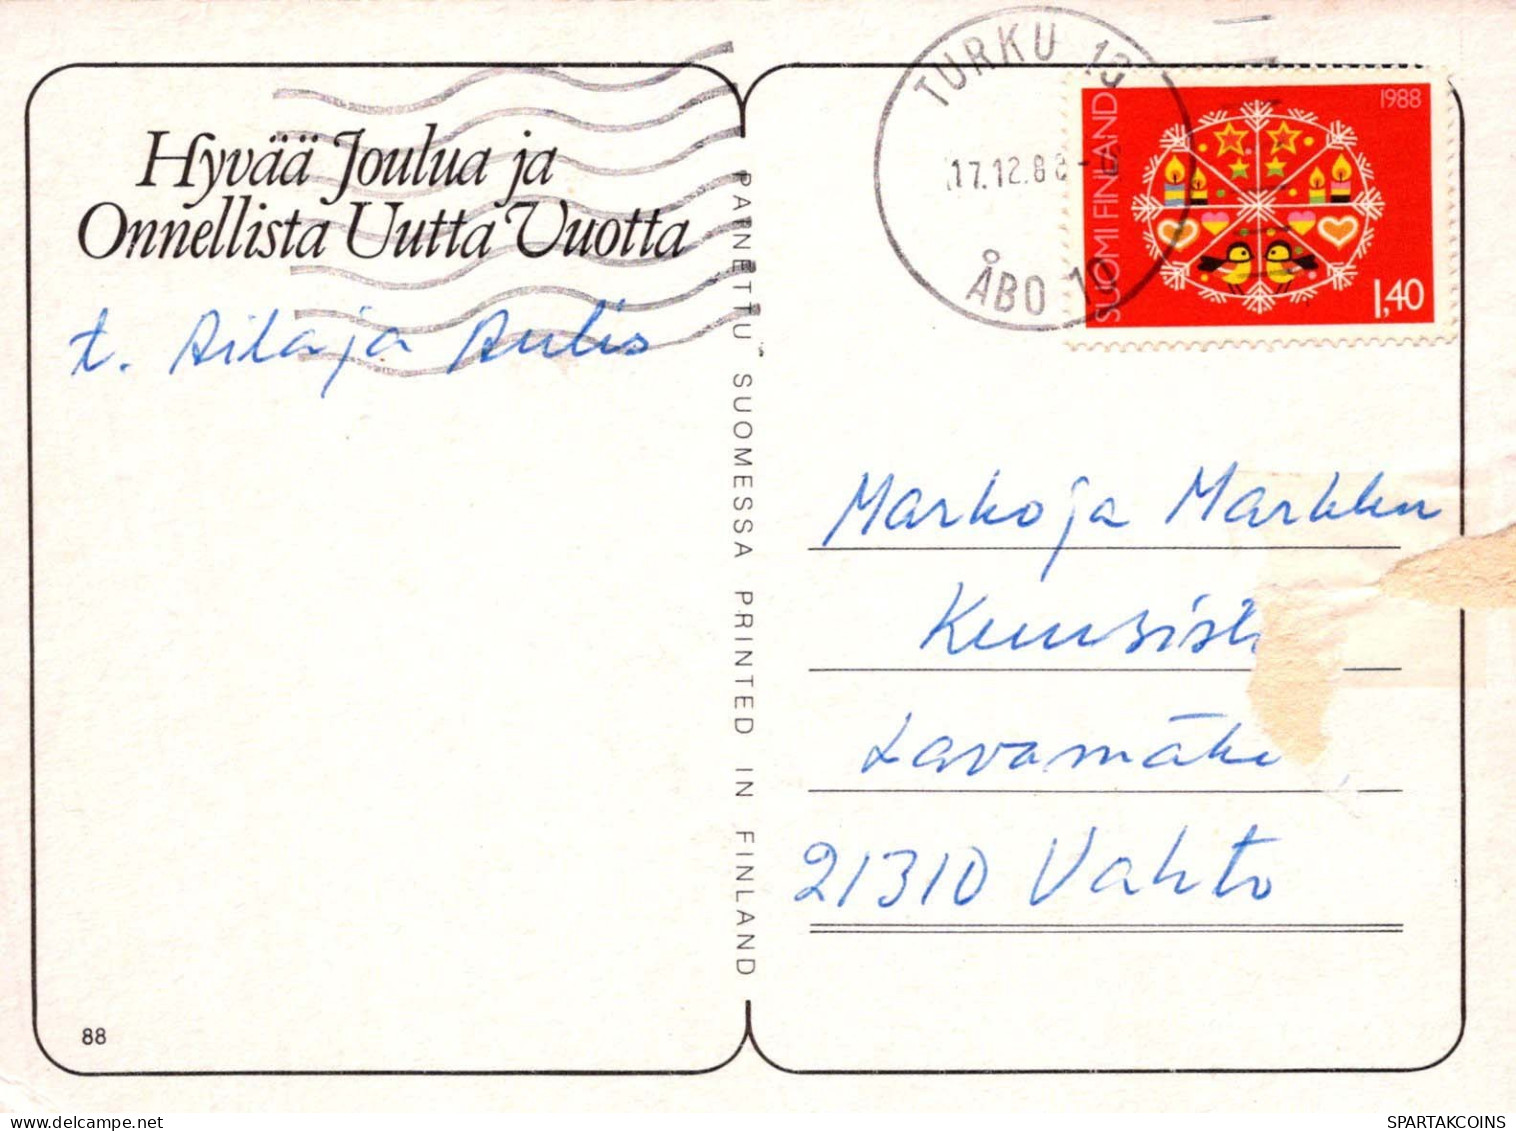 Hyvää Joulua ja
Onnellista Uutta Vuotta
t. Aila ja Aulis
88
PAINETTU SUOMESSA PRINTED IN FINLAND
TURKU 13
17.12.88
ÅBO 10
SUOMI FINLAND
1988
1,40
Marko ja Markku
Kuusist
Lavamäke
21310 Vahto
SPARTAKCOINS